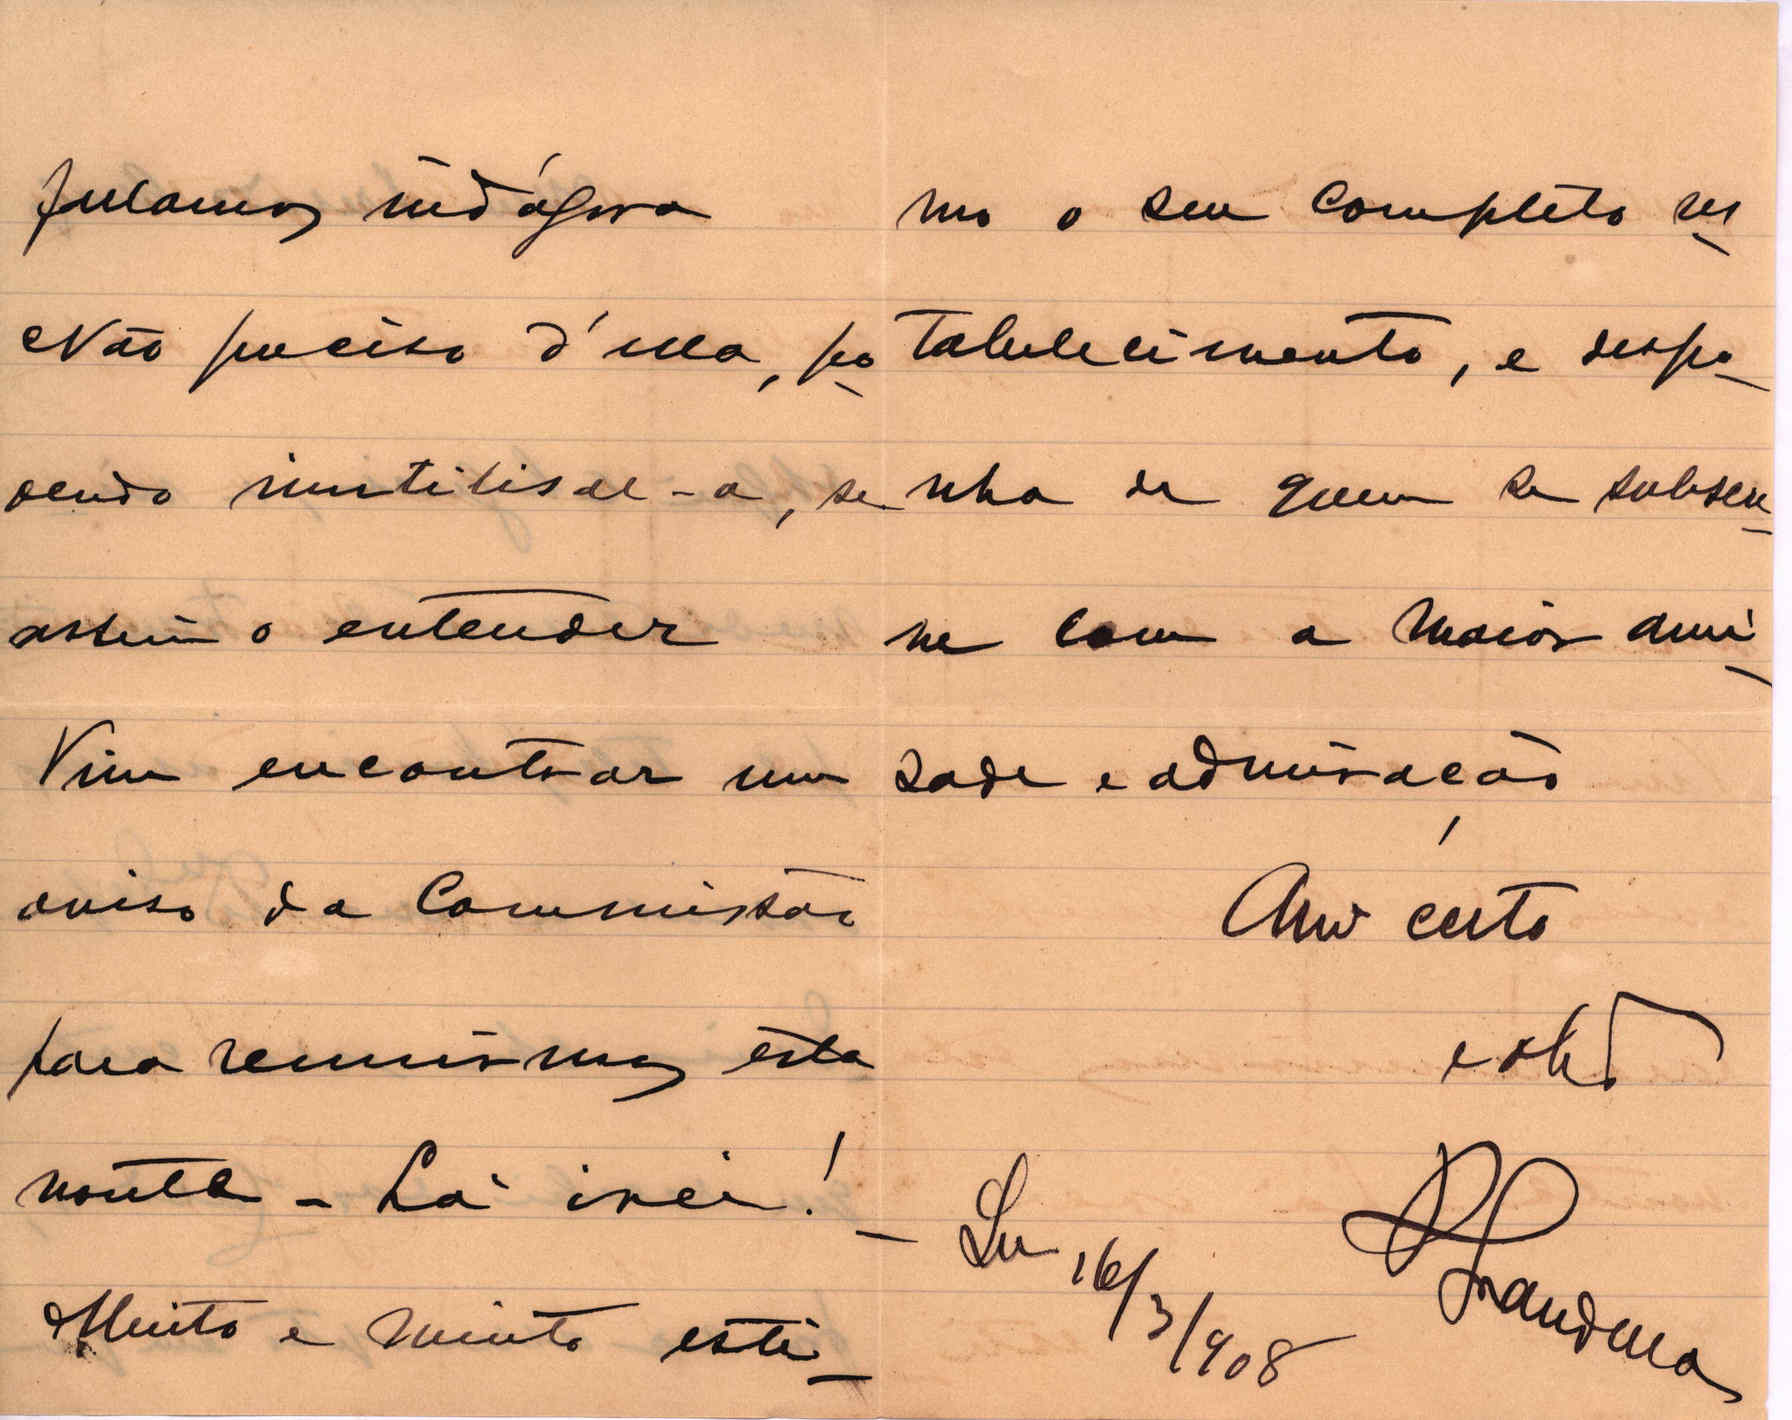 falamos indágora
Não preciso d'ella, po
dendo inutilisal-a, se
assim o entender
Vim encontrar um
aviso da Commissão
para reunirmos esta
noute - Lá irei! -
Muito e muito esti-
mo o seu completo res
tabelecimento, e despo-
nha de quem se subscre-
ve com a maior ami-
sade e admiração
Amº certo
e obº
Grandella
16/3/908